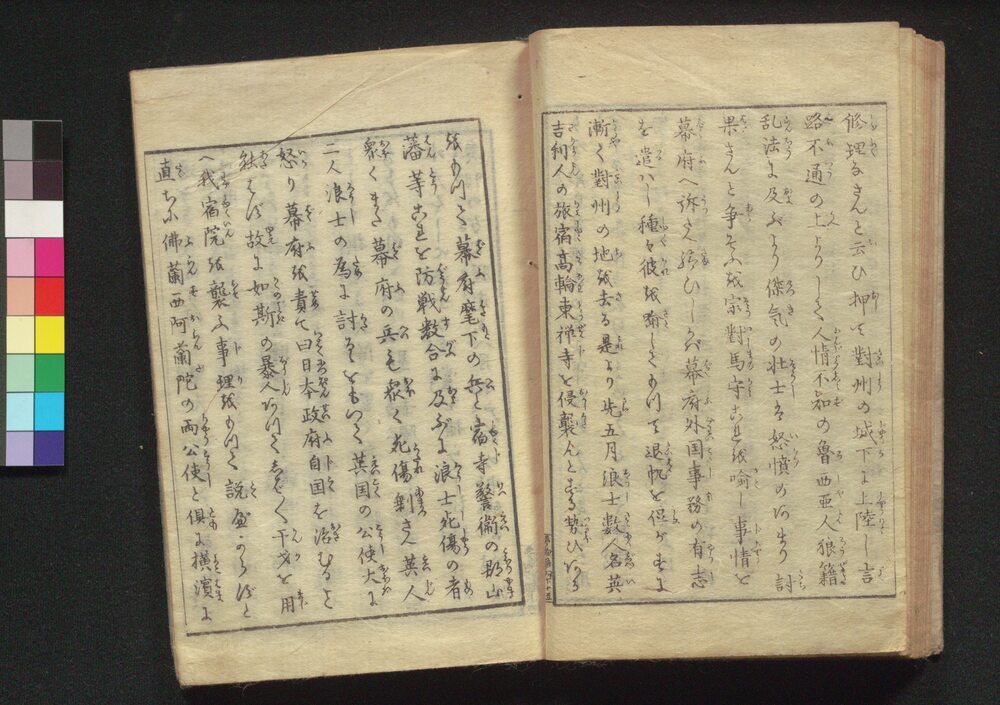 修理なさんと云ひ押て對州の城下に上陸し言
路不通の上よりして人情不知の魯西亜人狼籍
乱法に及ぶより俠気の壮士は怒憤のあまり討
果さんと争そふを宗對馬守これを喩し事情を
幕府へ訴え給ひしかば幕府外国事務の有志
を遣ハし種々彼を喩してもつて退帆を促がすに
漸く對州の地を去る是より先五月浪士數人名英
吉利人の旅宿高輪東禅寺を侵襲んとする勢ひある
をもつて幕府麾下の兵と宿寺警衛の郡山
藩等これを防戦数合に及ぶに浪士死傷の者
衆くまた幕府の兵も衆く死傷剰さえ英人
二人浪士の為に討るをもつて英国の公使大に
怒り幕府を責て曰日本政府自国を治むること
能はず故に如斯の暴人あつてしば〳〵干戈を用
へ我宿院を襲ふ事理をもつて説盡べからずと
直ちに佛蘭西阿蘭陀の両公使と倶に横濱に